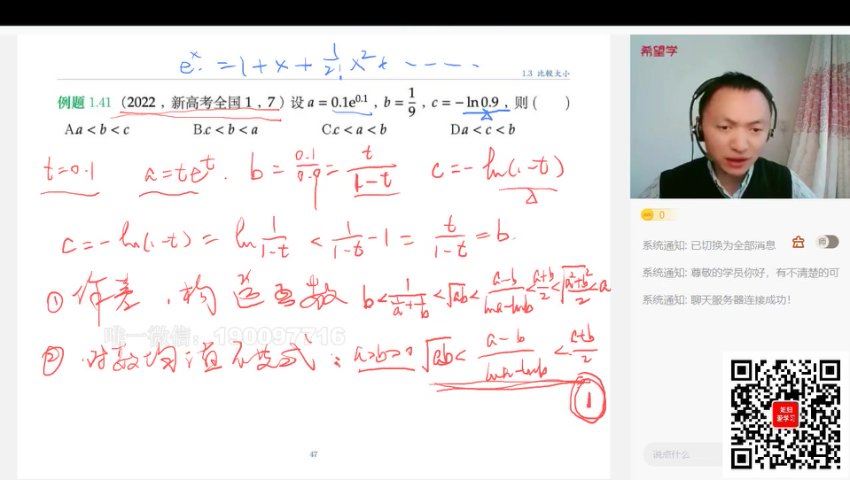 eˣ = 1 + x + 1/2! x² + ······
1.3 比较大小
例题 1.41 (2022，新高考全国 1，7) 设 a = 0.1e^0.1，b = 1/9，c = −ln0.9，则 (    )
A.a < b < c B.c < b < a C.c < a < b D.a < c < b
t=0.1 a=te^t. b=0.1/0.9=t/(1-t) c=-ln(1-t)
c=-ln(1-t)=ln 1/(1-t) < 1/(1-t) -1 = t/(1-t) =b.
① 作差，构造函数 b< < √ab < (a-b)/(lna-lnb) < (a+b)/2 < √((a²+b²)/2) < a
唯一微信：190097716
② 对数均值不等式：a>b>0 √ab < (a-b)/(lna-lnb) < (a+b)/2
①
47
希望学
0
系统通知: 已切换为全部消息
系统通知: 尊敬的学员你好，有不清楚的可
系统通知: 聊天服务器连接成功！
说点什么
爱学习